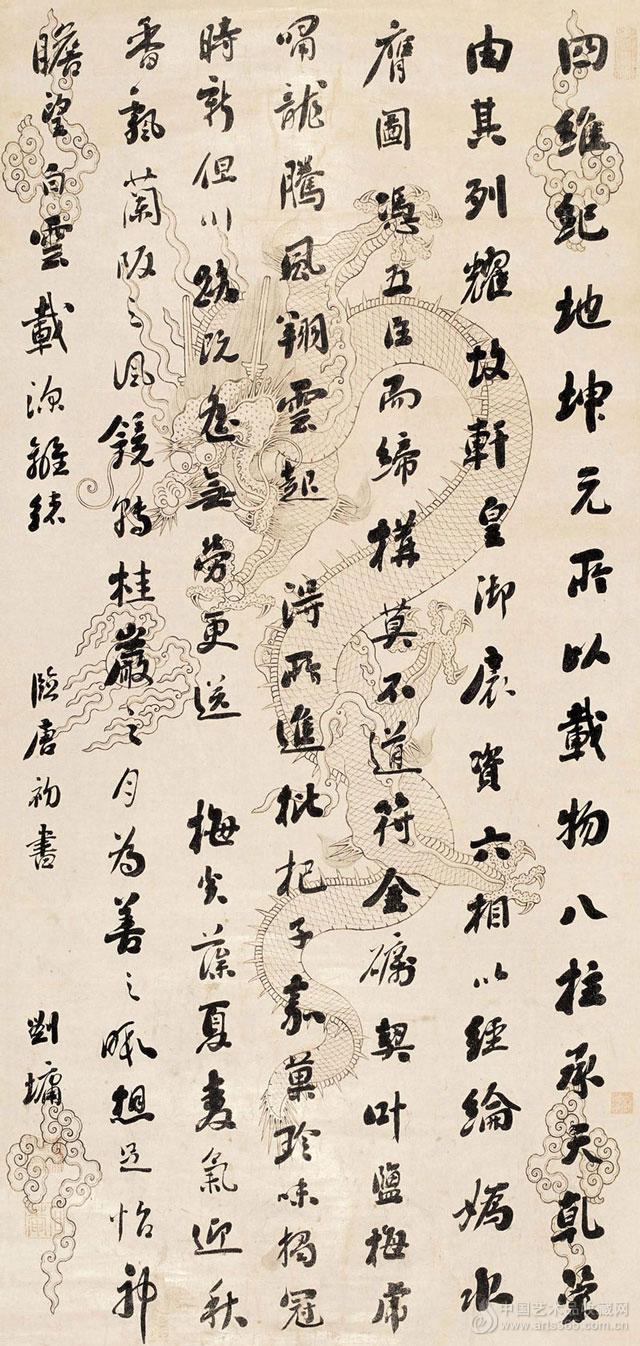 四維紀地坤元所以載物八柱承天乾象
由其列耀故軒皇御扆資六相以經綸媯水
膺圖憑五臣而締構莫不道符金礪契叶鹽梅虎
嘯龍騰風翔雲起 得所進枇把子嘉菓珍味獨冠
時新但川路既遙無勞更送 梅炎藻夏麦氣迎秋
香飄蘭阪之風鏡轉桂巖之月為善之暇想足怡神
瞻望白雲載深離緒 臨唐初書 劉墉
中国艺术品收藏网